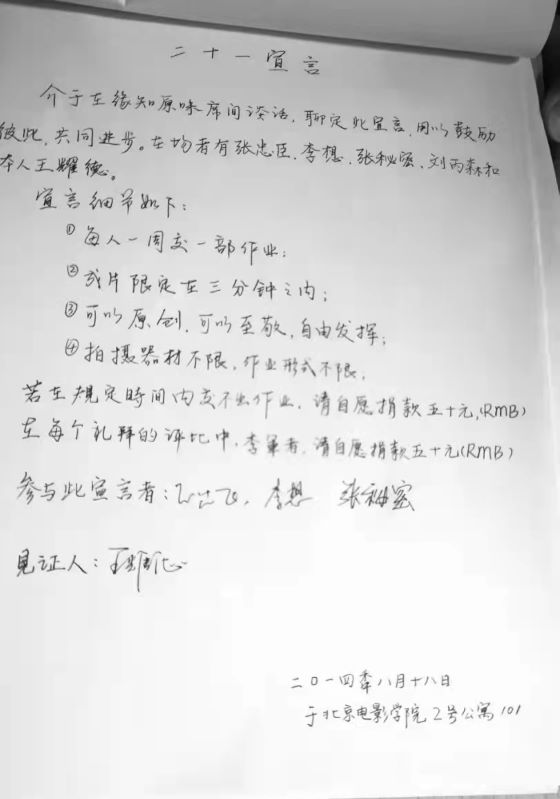 二十一宣言
介于在缘知原味席间谈话，聊定此宣言，用以鼓励
彼此，共同进步。在场者有张忠臣、李想、张秘密、刘丙森和
本人王耀德。
宣言细节如下：
①每人一周交一部作业；
②成片限定在三分钟之内；
③可以原创，可以至敬，自由发挥；
④拍摄器材不限，作业形式不限。
若在规定时间内交不出作业，请自愿捐款五十元，(RMB)
在每个礼拜的评比中，季军者，请自愿捐款五十元(RMB)
参与此宣言者：李想 张秘密
见证人：
二〇一四年八月十八日
于北京电影学院2号公寓101